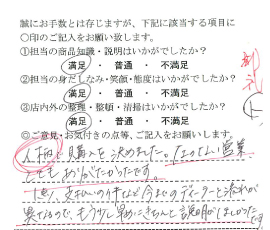 誠にお手数とは存じますが、下記に該当する項目に
○印のご記入をお願い致します。
①担当の商品知識・説明はいかがでしたか？
満足 ・ 普通 ・ 不満足
②担当の身だしなみ・笑顔・態度はいかがでしたか？
満足 ・ 普通 ・ 不満足
③店内外の整理・整頓・清掃はいかがでしたか？
満足 ・ 普通 ・ 不満足
◎ご意見・お気付きの点等、ご記入をお願いします。
人柄で購入を決めました。営業
とてもありがたかったです。
支払いの件など今までのディーラーと流れが
異なるので、もう少し早めにきちんと説明がほしかったです。